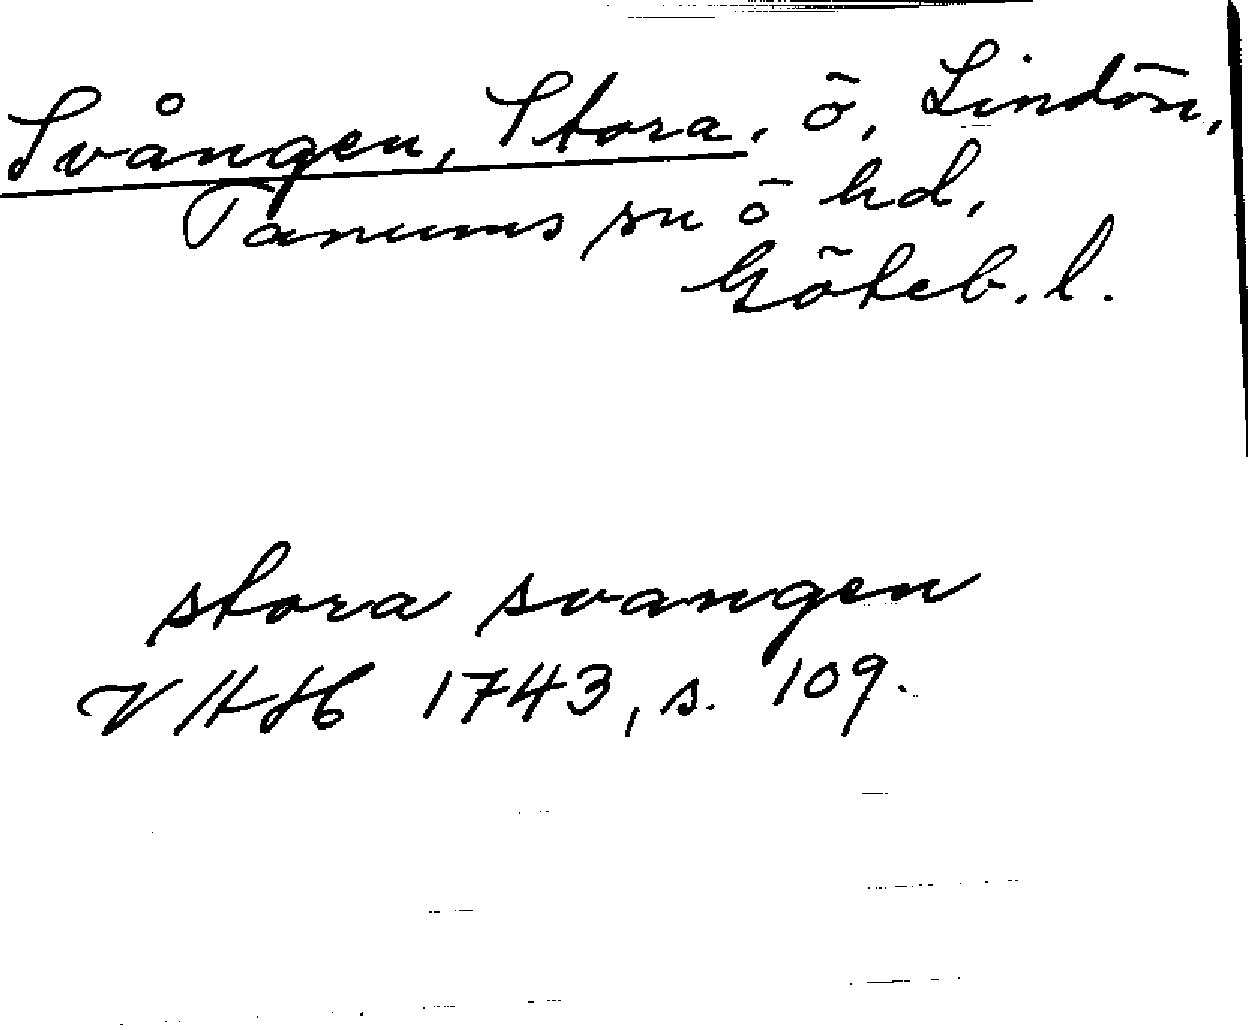 Svången, Stora, ö, Lindön,
Tanums sn ö hd,
Göteb. l.
stora svangen
VHH 1743, s. 109.